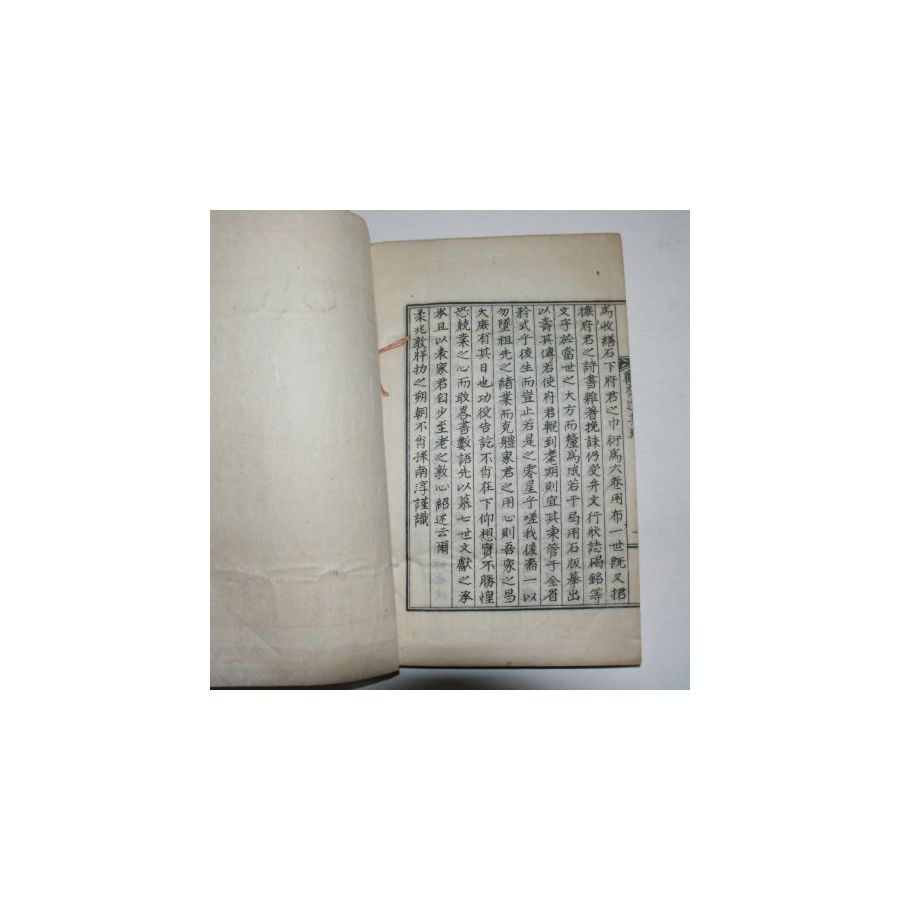 爲收繕石下府君之巾衍爲六卷用布一世旣又捃
摭府君之詩書雜著挽誄仍受弁文行狀誌碣銘等
文字於當世之大方而釐爲成若干局用石版摹出
以壽其傳若使府君輥到耄期則宜其秉管于金省
矜式乎後生而豈止若是之零星乎嗟我後裔一以
勿墜祖先之緖業而克軆家君之用心則吾家之昌
大庶有其日也功役告訖不肖在下仰想實不勝惶
恐兢業之心而敢畧書數語先以慕七世文獻之承
承且以表家君自少至老之敦心紹述云爾
柔兆敦牂之朔朝不肖孫南淳謹識